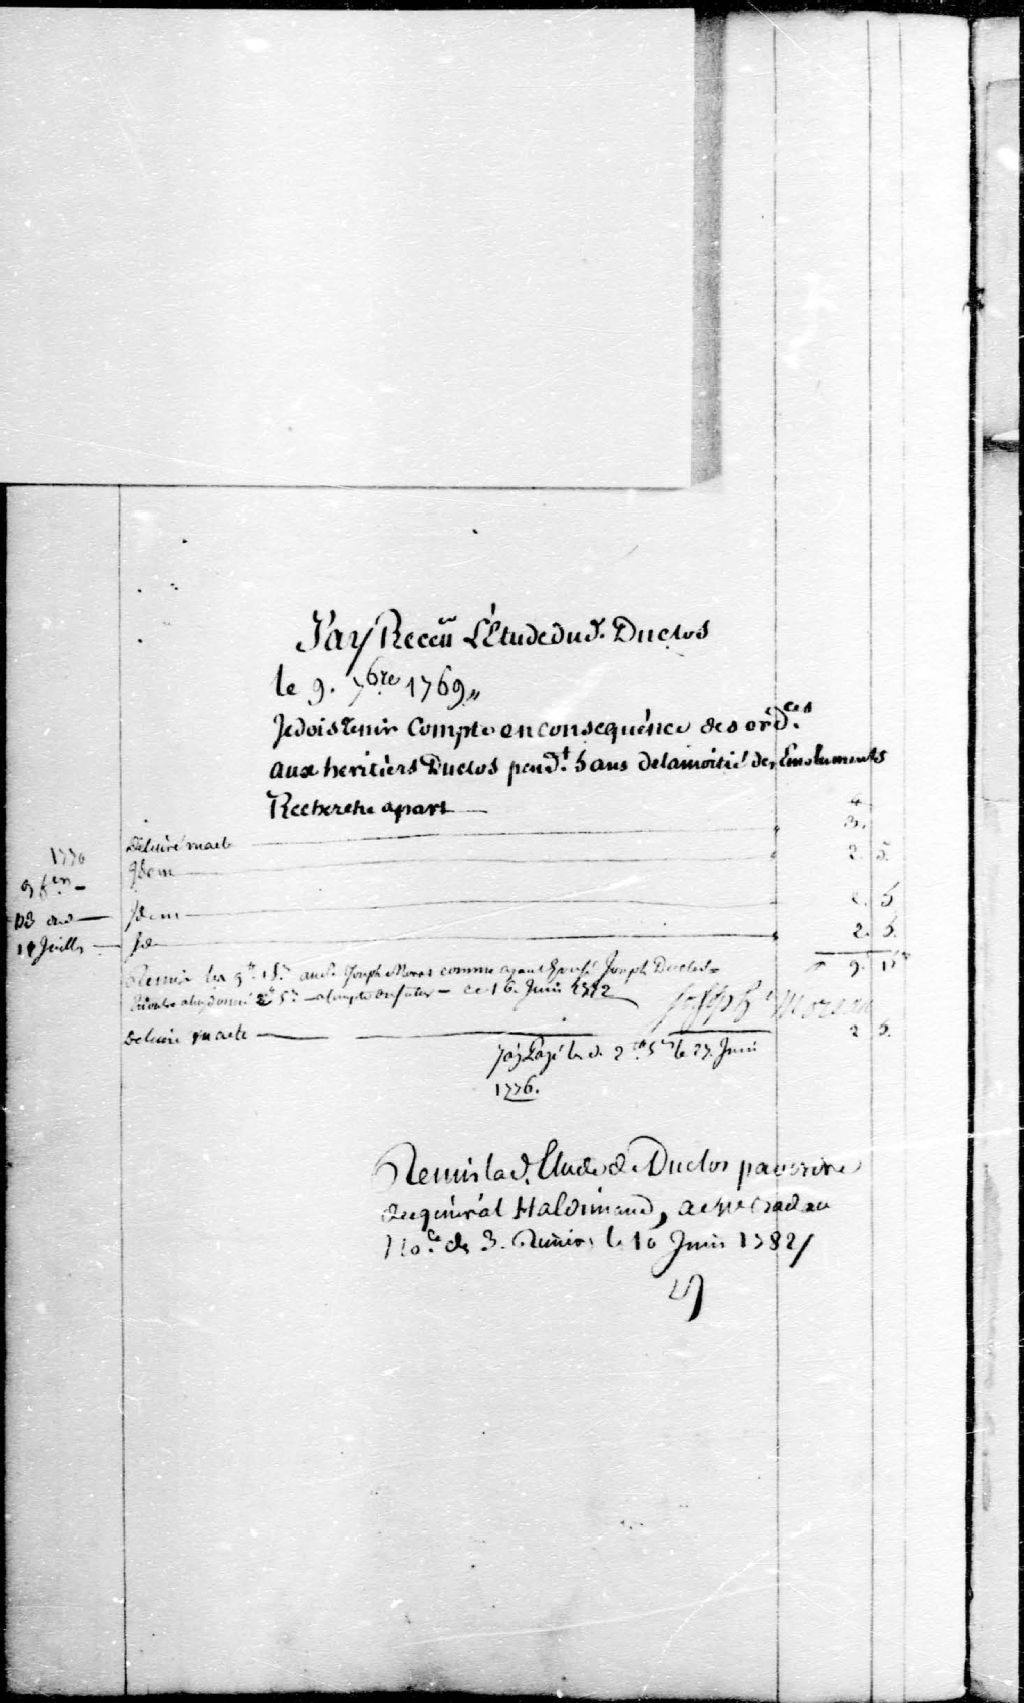 J'ay Receu L'Etude du d. Duclos
le 9. 7bre 1769"
Je dois tenir Compte en consequence des ord.ces
aux heritiers Duclos pend.t 5 ans de la moitié des Emoluments
Recherche apart —
1770 Delivré un acte — 3.
9 fer - Idem — 2. 5.
Idem — 2. 5
14 Juillt — Id — 2. 5.
9. 15
Remis les 9# 15s aud. Joseph comme ayant Epousé Joseph Duclos
ce 16 Juin 1772
Joseph Moreau
Delivré un acte — 2 5.
J'ay Payé les d. 2# 5s le 27. Juin
1776.
Remis la d. Etude de Duclos par ordre
du général Haldimand, a
No.re de 3. Rivieres le 10 Juin 1782/